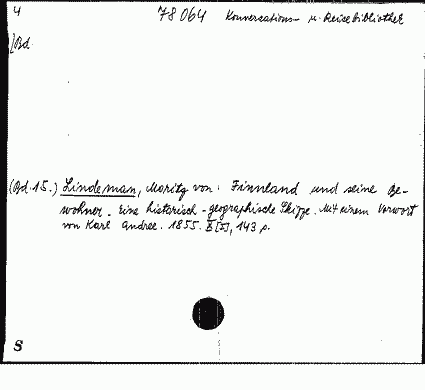 4 78 064 Konversations- u. Reisebibliothek
[Bd.
(Bd. 15.) Lindeman, Moritz von: Finnland und seine Be-
wohner. Eine historisch-geographische Skizze. Mit einem Vorwort
von Karl Andree. 1855. [I], 143 p.
S